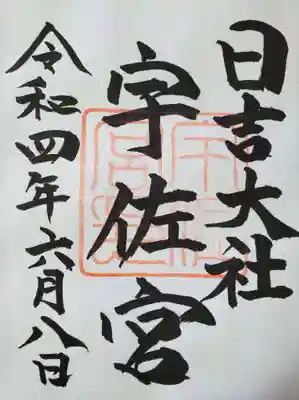 日吉大社
宇佐宮
令和四年六月八日